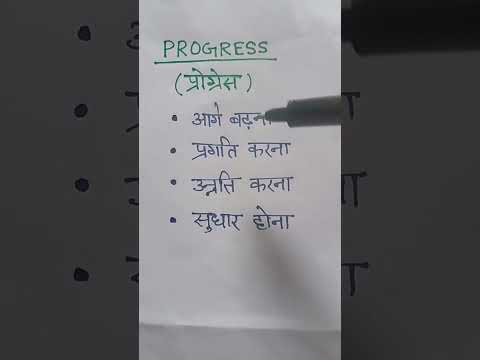 PROGRESS
(प्रोग्रेस)
• आगे बढ़ना
• प्रगति करना
• उन्नति करना
• सुधार होना